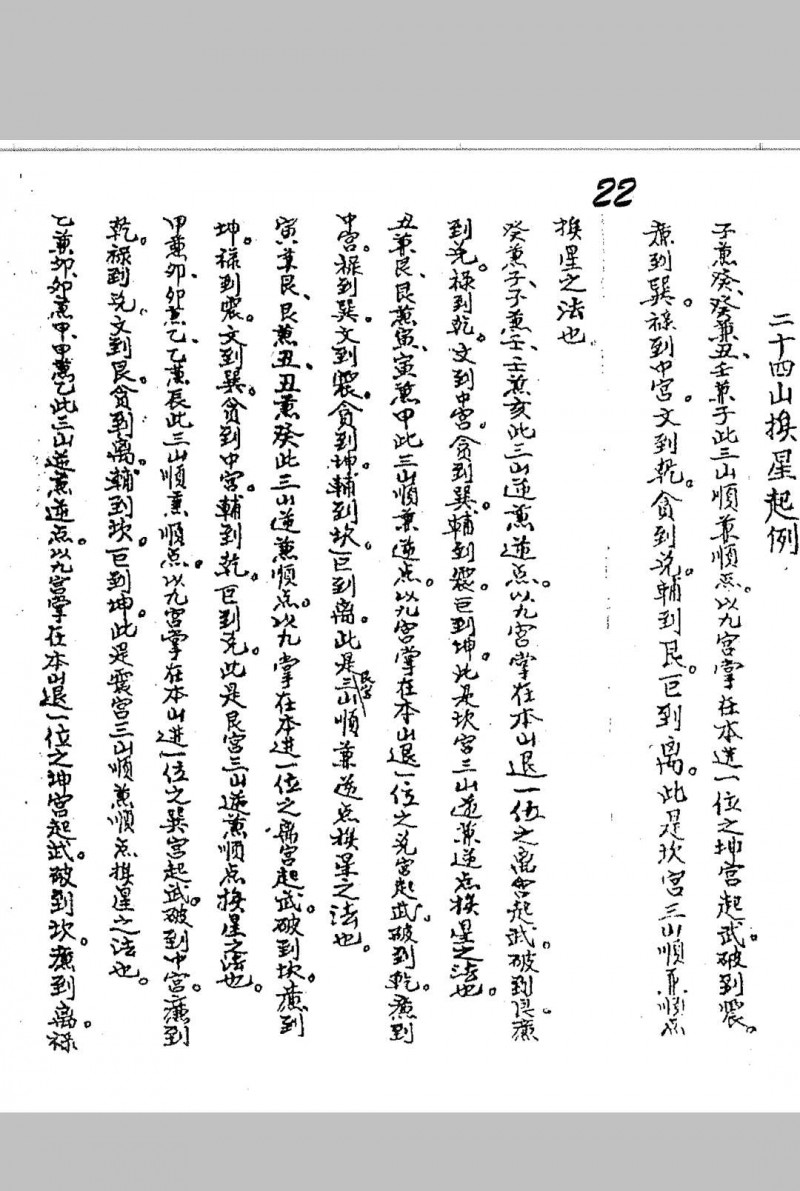 二十四山换星起例
子兼癸、癸兼丑、壬兼子此三山順兼順点。以九宫掌在本進一位之坤宫起武。破到震。
廉到巽。禄到中宫。文到乾。貪到兑。輔到艮。巨到离。此是坎宫三山順兼順点
22
换星之法也。
癸兼子、子兼壬、壬兼亥此三山逆兼逆点。以九宫掌在本山退一位之离宫起武。破到艮。廉
到兑。禄到乾。文到中宫。貪到巽。輔到震。巨到坤。此是坎宫三山逆兼逆点换星之法也。
丑兼艮、艮兼寅、寅兼甲此三山順兼逆点。以九宫掌在本山退一位之兑宫起武。破到乾。廉到
中宫。禄到巽。文到震。貪到坤。輔到坎。巨到离。此是艮宫三山順兼逆点换星之法也。
寅兼艮、艮兼丑、丑兼癸此三山逆兼順点。以九掌在本進一位之离宫起武。破到坎。廉到
坤。禄到震。文到巽。貪到中宫。輔到乾。巨到兑。此是艮宫三山逆兼順点换星之法也。
甲兼卯、卯兼乙、乙兼辰此三山順兼順点。以九宫掌在本山進一位之巽宫起武。破到中宫。廉到
乾。禄到兑。文到艮。貪到离。輔到坎。巨到坤。此是震宫三山順兼順点换星之法也。
乙兼卯、卯兼甲、甲兼乙此三山逆兼逆点。以九宫掌在本山退一位之坤宫起武。破到坎。廉到离。禄